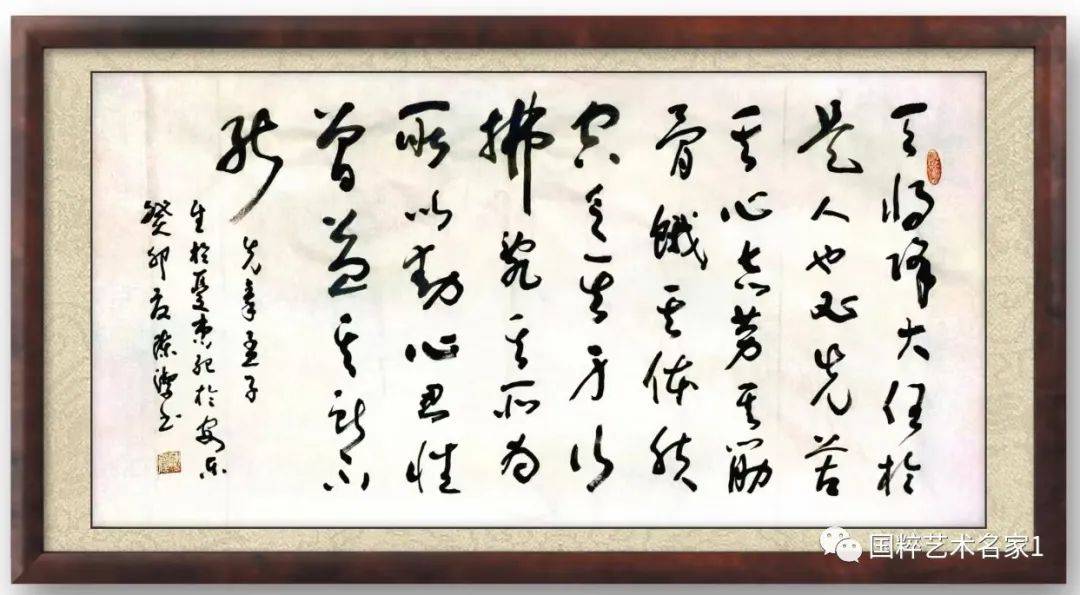 天将降大任於
是人也必先苦
其心志劳其筋
骨饿其体肤
空乏其身行
拂乱其所为
所以动心忍性
曾益其所不
能
先秦孟子
生於忧患死於安乐
癸卯夏陈书
国粹艺术名家1